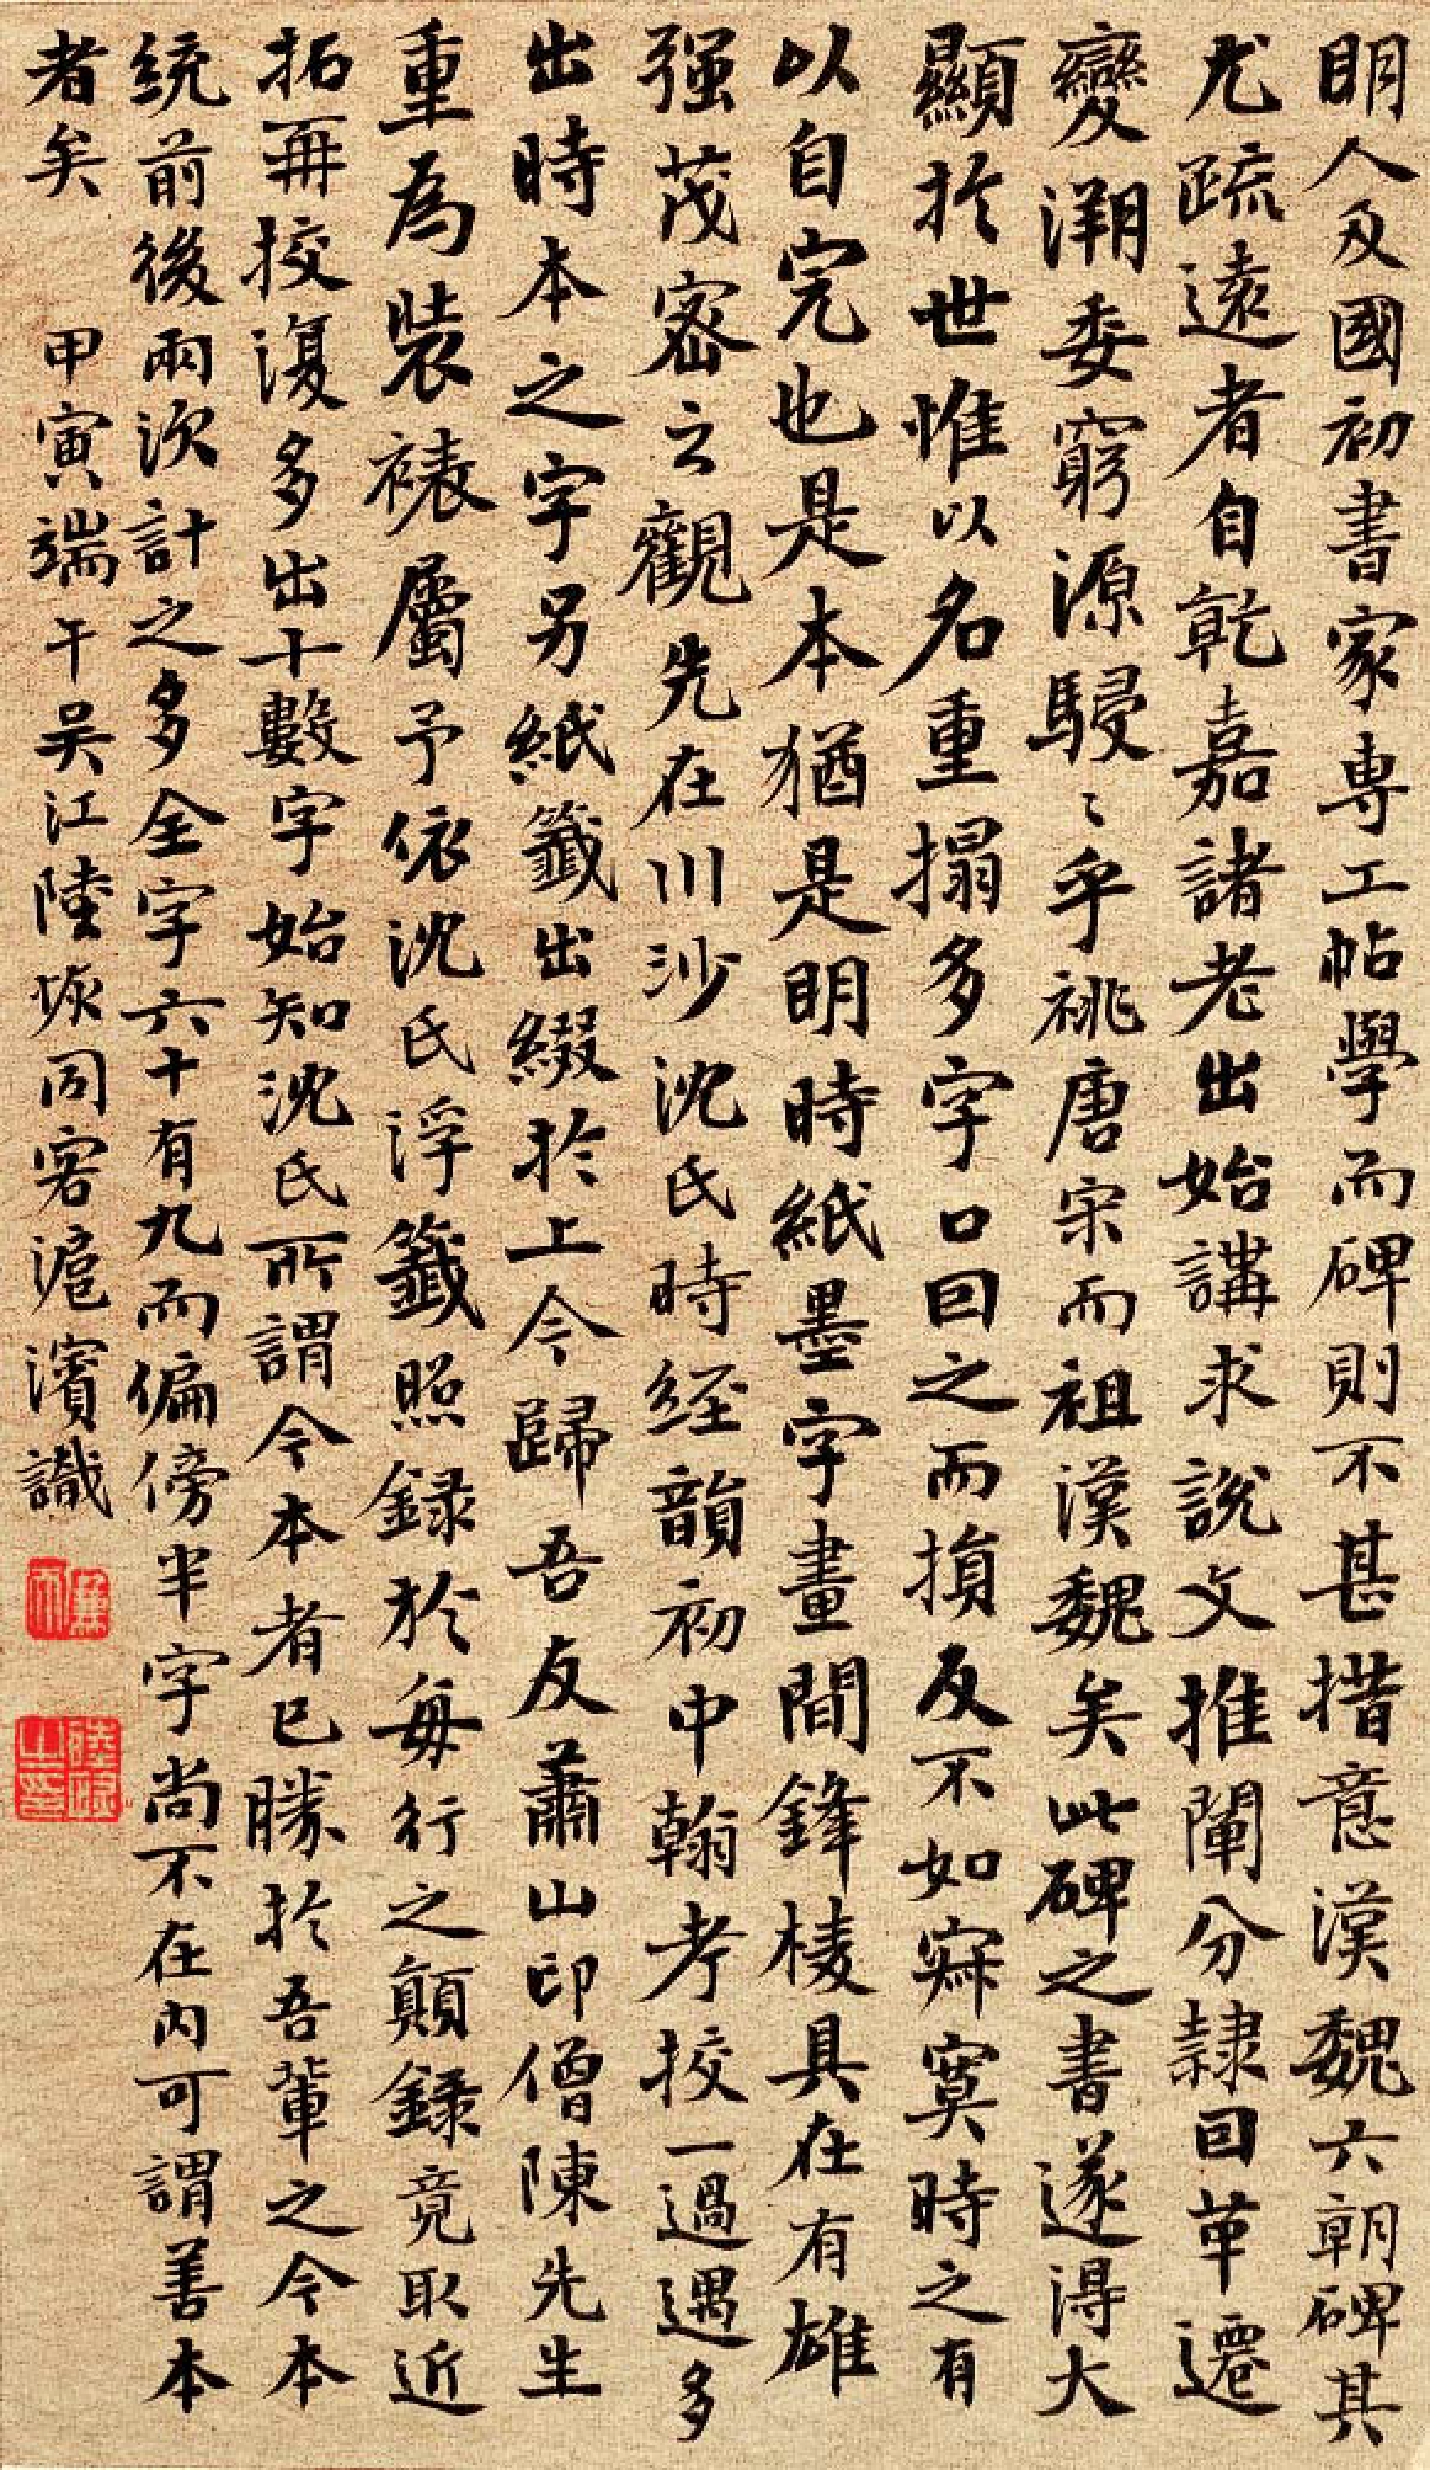 明人及國初書家專工帖學而碑則不甚措意漢魏六朝碑其
尤疏遠者自乾嘉諸老出始講求說文推闡分隸因革遷
變溯委窮源駸〻乎祧唐宋而祖漢魏矣此碑之書遂得大
顯於世惟以名重搨多字口因之而損反不如寂寞時之有
以自完也是本猶是明時紙墨字畫間鋒棱具在有雄
强茂密之觀先在川沙沈氏時經韻初中翰考挍一過遇多
出時本之字另紙籤出綴於上今歸吾友蕭山印僧陳先生
重為裝裱屬予依沈氏浮籤照録於每行之顛録竟取近
拓再挍復多出十數字始知沈氏所謂今本者已勝於吾輩之今本
统前後兩次計之多全字六十有九而偏傍半字尚不在內可謂善本
者矣 甲寅端午吴江陸恢同客滬濱識
廉夫
陸恢之印